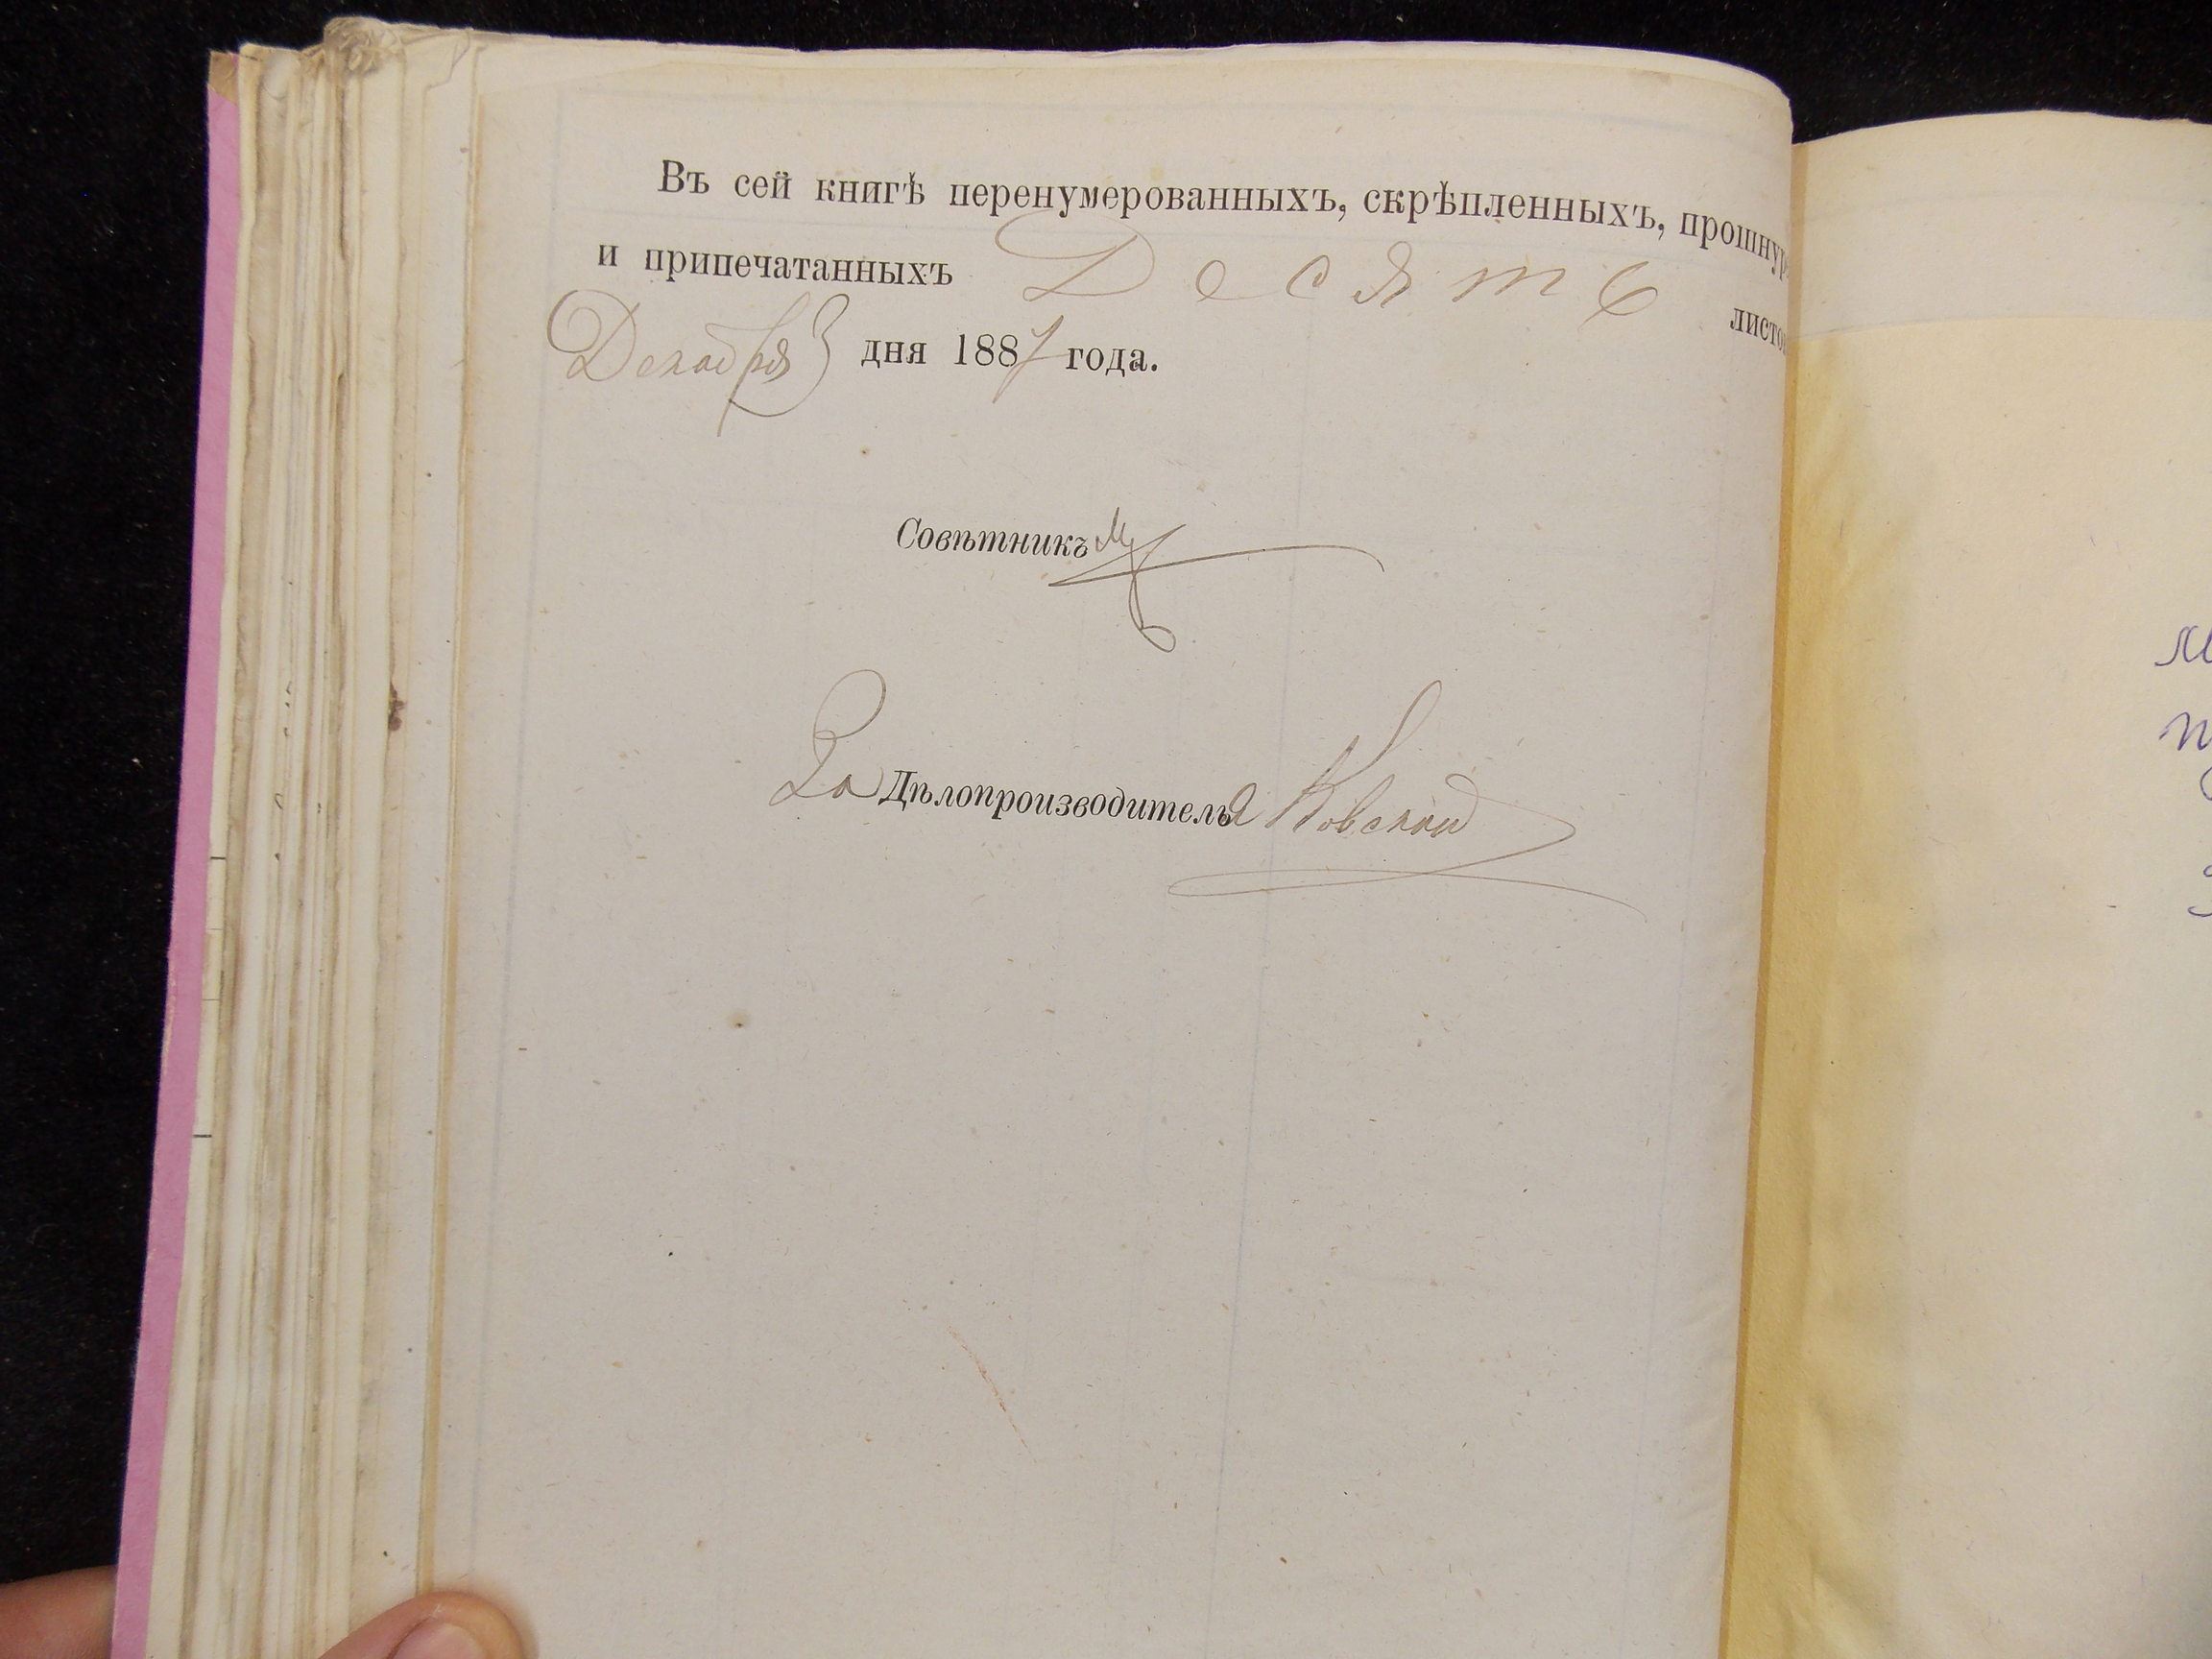 Въ сей книгѣ перенумерованныхъ, скрѣпленныхъ, прошнур
и припечатанныхъ Десять листо
Декабря 3 дня 1887 года.
Совѣтникъ
За Дѣлопроизводителья